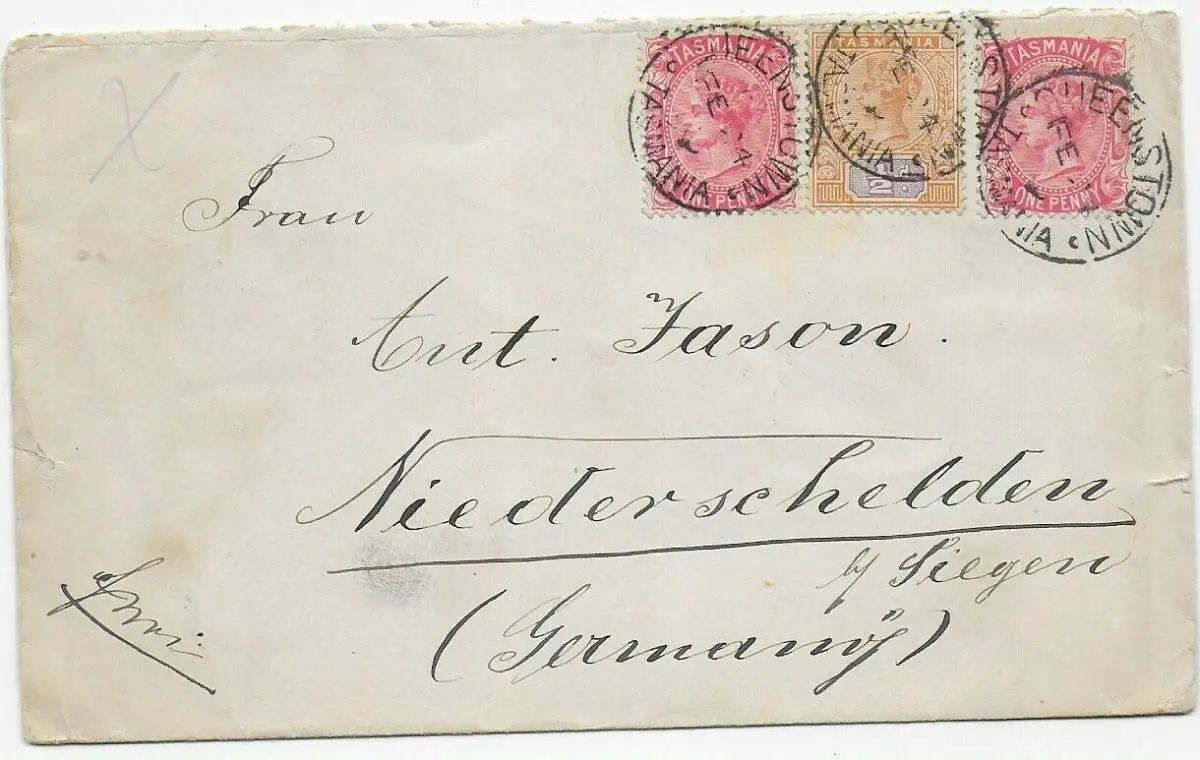 TASMANIA
ONE PENNY
TASMANIA
TASMANIA
ONE PENNY
QUEENSTOWN
TASMANIA
FE 4
QUEENSTOWN
TASMANIA
FE 4
QUEENSTOWN
TASMANIA
FE
X
Frau
Ant. Jason.
Niederschelden
b/ Siegen
(Germany)